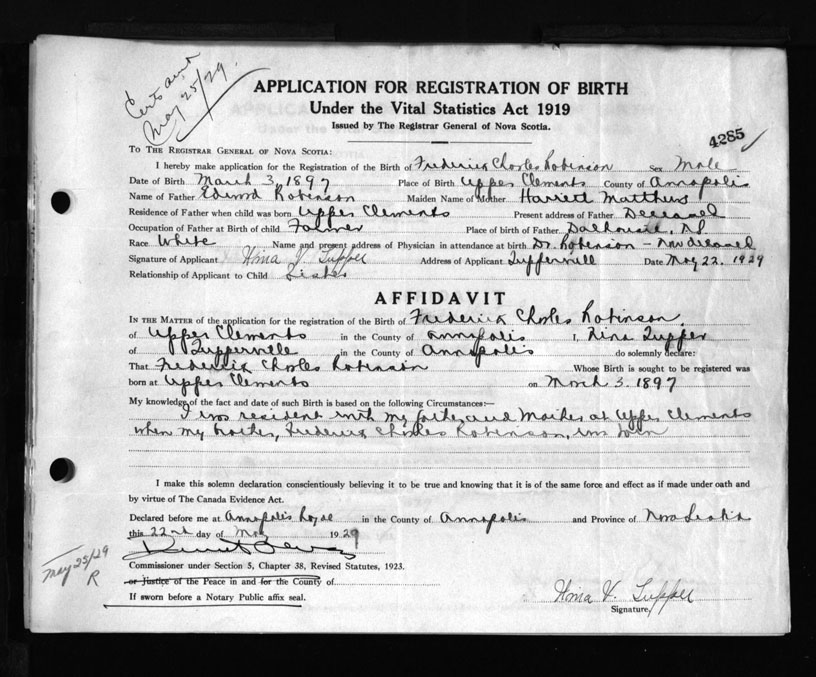 Cert. sent
May 25/29.
APPLICATION FOR REGISTRATION OF BIRTH
Under the Vital Statistics Act 1919
Issued by The Registrar General of Nova Scotia.
4285
TO THE REGISTRAR GENERAL OF NOVA SCOTIA:
I hereby make application for the Registration of the Birth of Frederick Charles Robinson Sex Male
Date of Birth March 3, 1897 Place of Birth Upper Clements County of Annapolis
Name of Father Edward Robinson Maiden Name of Mother Harriett Matthews
Residence of Father when child was born Upper Clements Present address of Father Deceased
Occupation of Father at Birth of child Farmer Place of birth of Father Dalhousie, N.S.
Race White Name and present address of Physician in attendance at birth Dr. Robinson – now deceased
Signature of Applicant Nina V. Tupper Address of Applicant Tupperville Date May 22, 1929
Relationship of Applicant to Child Sister
AFFIDAVIT
IN THE MATTER of the application for the registration of the Birth of Frederick Charles Robinson
of Upper Clements in the County of Annapolis I, Nina Tupper
of Tupperville in the County of Annapolis do solemnly declare:
That Frederick Charles Robinson Whose Birth is sought to be registered was
born at Upper Clements on March 3, 1897
My knowledge of the fact and date of such Birth is based on the following Circumstances:—
I was resident with my father and mother at Upper Clements
when my brother, Frederick Charles Robinson, was born
I make this solemn declaration conscientiously believing it to be true and knowing that it is of the same force and effect as if made under oath and
by virtue of The Canada Evidence Act.
Declared before me at Annapolis Royal in the County of Annapolis and Province of Nova Scotia
this 22nd day of May 1929
Commissioner under Section 5, Chapter 38, Revised Statutes, 1923.
or Justice of the Peace in and for the County of
If sworn before a Notary Public affix seal.
May 25/29
R
Nina V. Tupper
Signature,